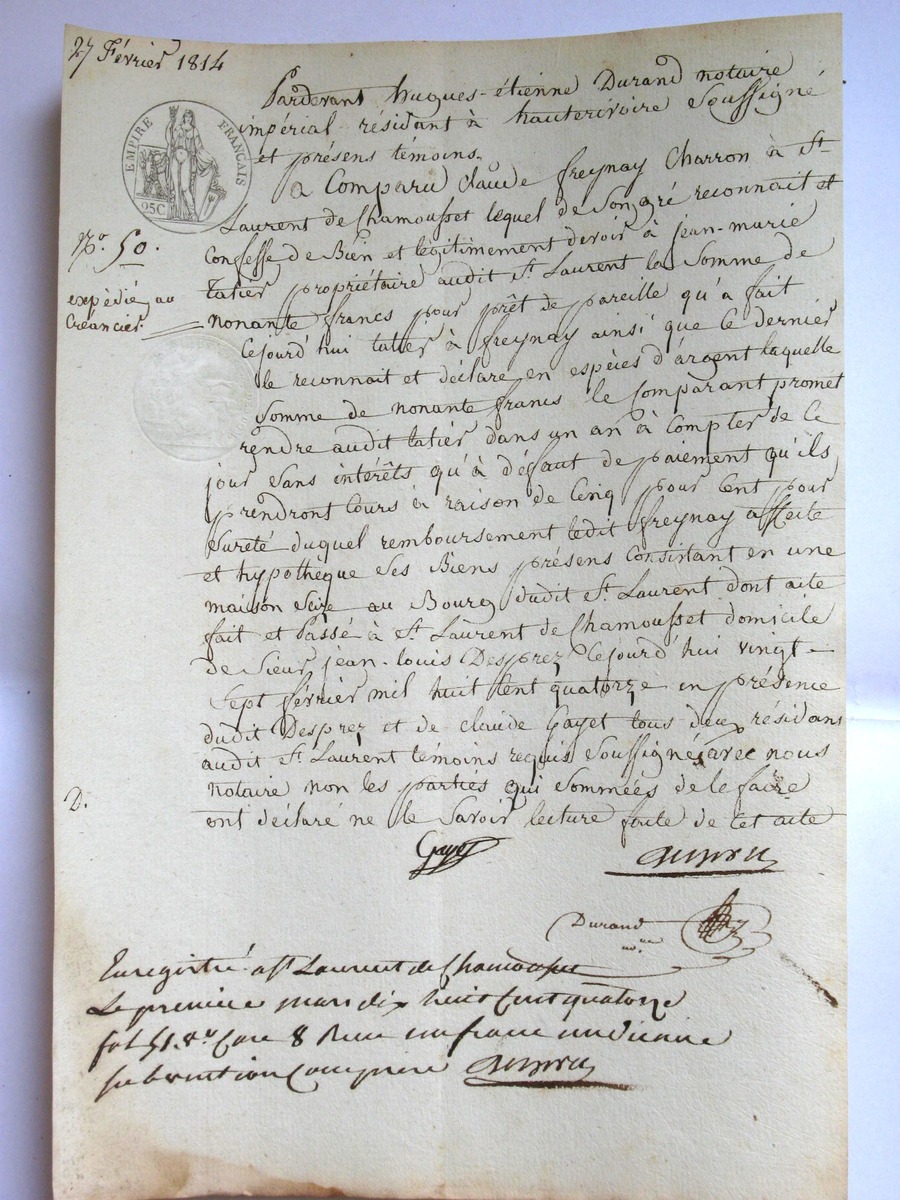 27 Février 1814
Pardevant hugues-étienne Durand notaire
impérial résidant à hauterivoire Soussigné
et présens témoins.
EMPIRE FRANÇAIS
25C
a Comparu Claude freynay Charron à St
Laurent de Chamousset lequel de Son gré reconnait et
Confesse de Bien et légitimement devoir à jean-marie
N.o 50.
tatier propriétaire audit St Laurent la Somme de
expédié au
Créancier.
nonante francs pour prêt de pareille qu'a fait
Cejourd'hui tatier à freynay ainsi que Ce dernier
le reconnait et déclare en espèces d'argent laquelle
Somme de nonante francs le Comparant promet
rendre audit tatier dans un an à Compter de Ce
jour Sans intérêts qu'à défaut de paiement qu'ils
prendront Cours à raison de Cinq pour Cent pour
Sureté duquel remboursement ledit freynay affecte
et hypothèque Ses Biens présens Consistant en une
maison Seize au Bourg dudit St Laurent dont acte
fait et Passé à St Laurent de Chamousset domicile
de Sieur jean-louis Desprez Cejourd'hui vingt-
Sept février mil huit Cent quatorze en présence
dudit Desprez et de Claude Gayet tous deux résidans
audit St Laurent témoins requis Soussignés avec nous
notaire non les parties qui Sommées de le faire
D.
ont déclaré ne le Savoir lecture faite de Cet acte
Gayet
Durand
n.re
Enregistré a St Laurent de Chamousset
Le premier mars dix huit Cent quatorze
fol 51 v.o Case 8 Reçu un franc un dixieme
Subvention Comprise